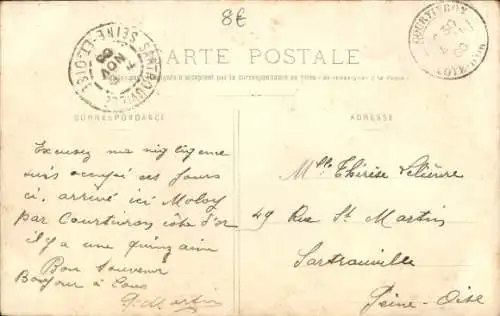 8€
CARTE POSTALE
CORRESPONDANCE
ADRESSE
SARTROUVILLE SEINE-ET-OISE
NOV
09
COURTIVRON
CÔTE-D'OR
Excusez ma négligeme
suis occupé ces jours
ci. arrivé ici Moloy
par Courtivron côte d'or
il y a une quinzaine
Bon Souvenir
Bonjour à tous
G. Martin
Mlle Thérèse Lelièvre
49 Rue St. Martin
Sartrouville
Seine-Oise